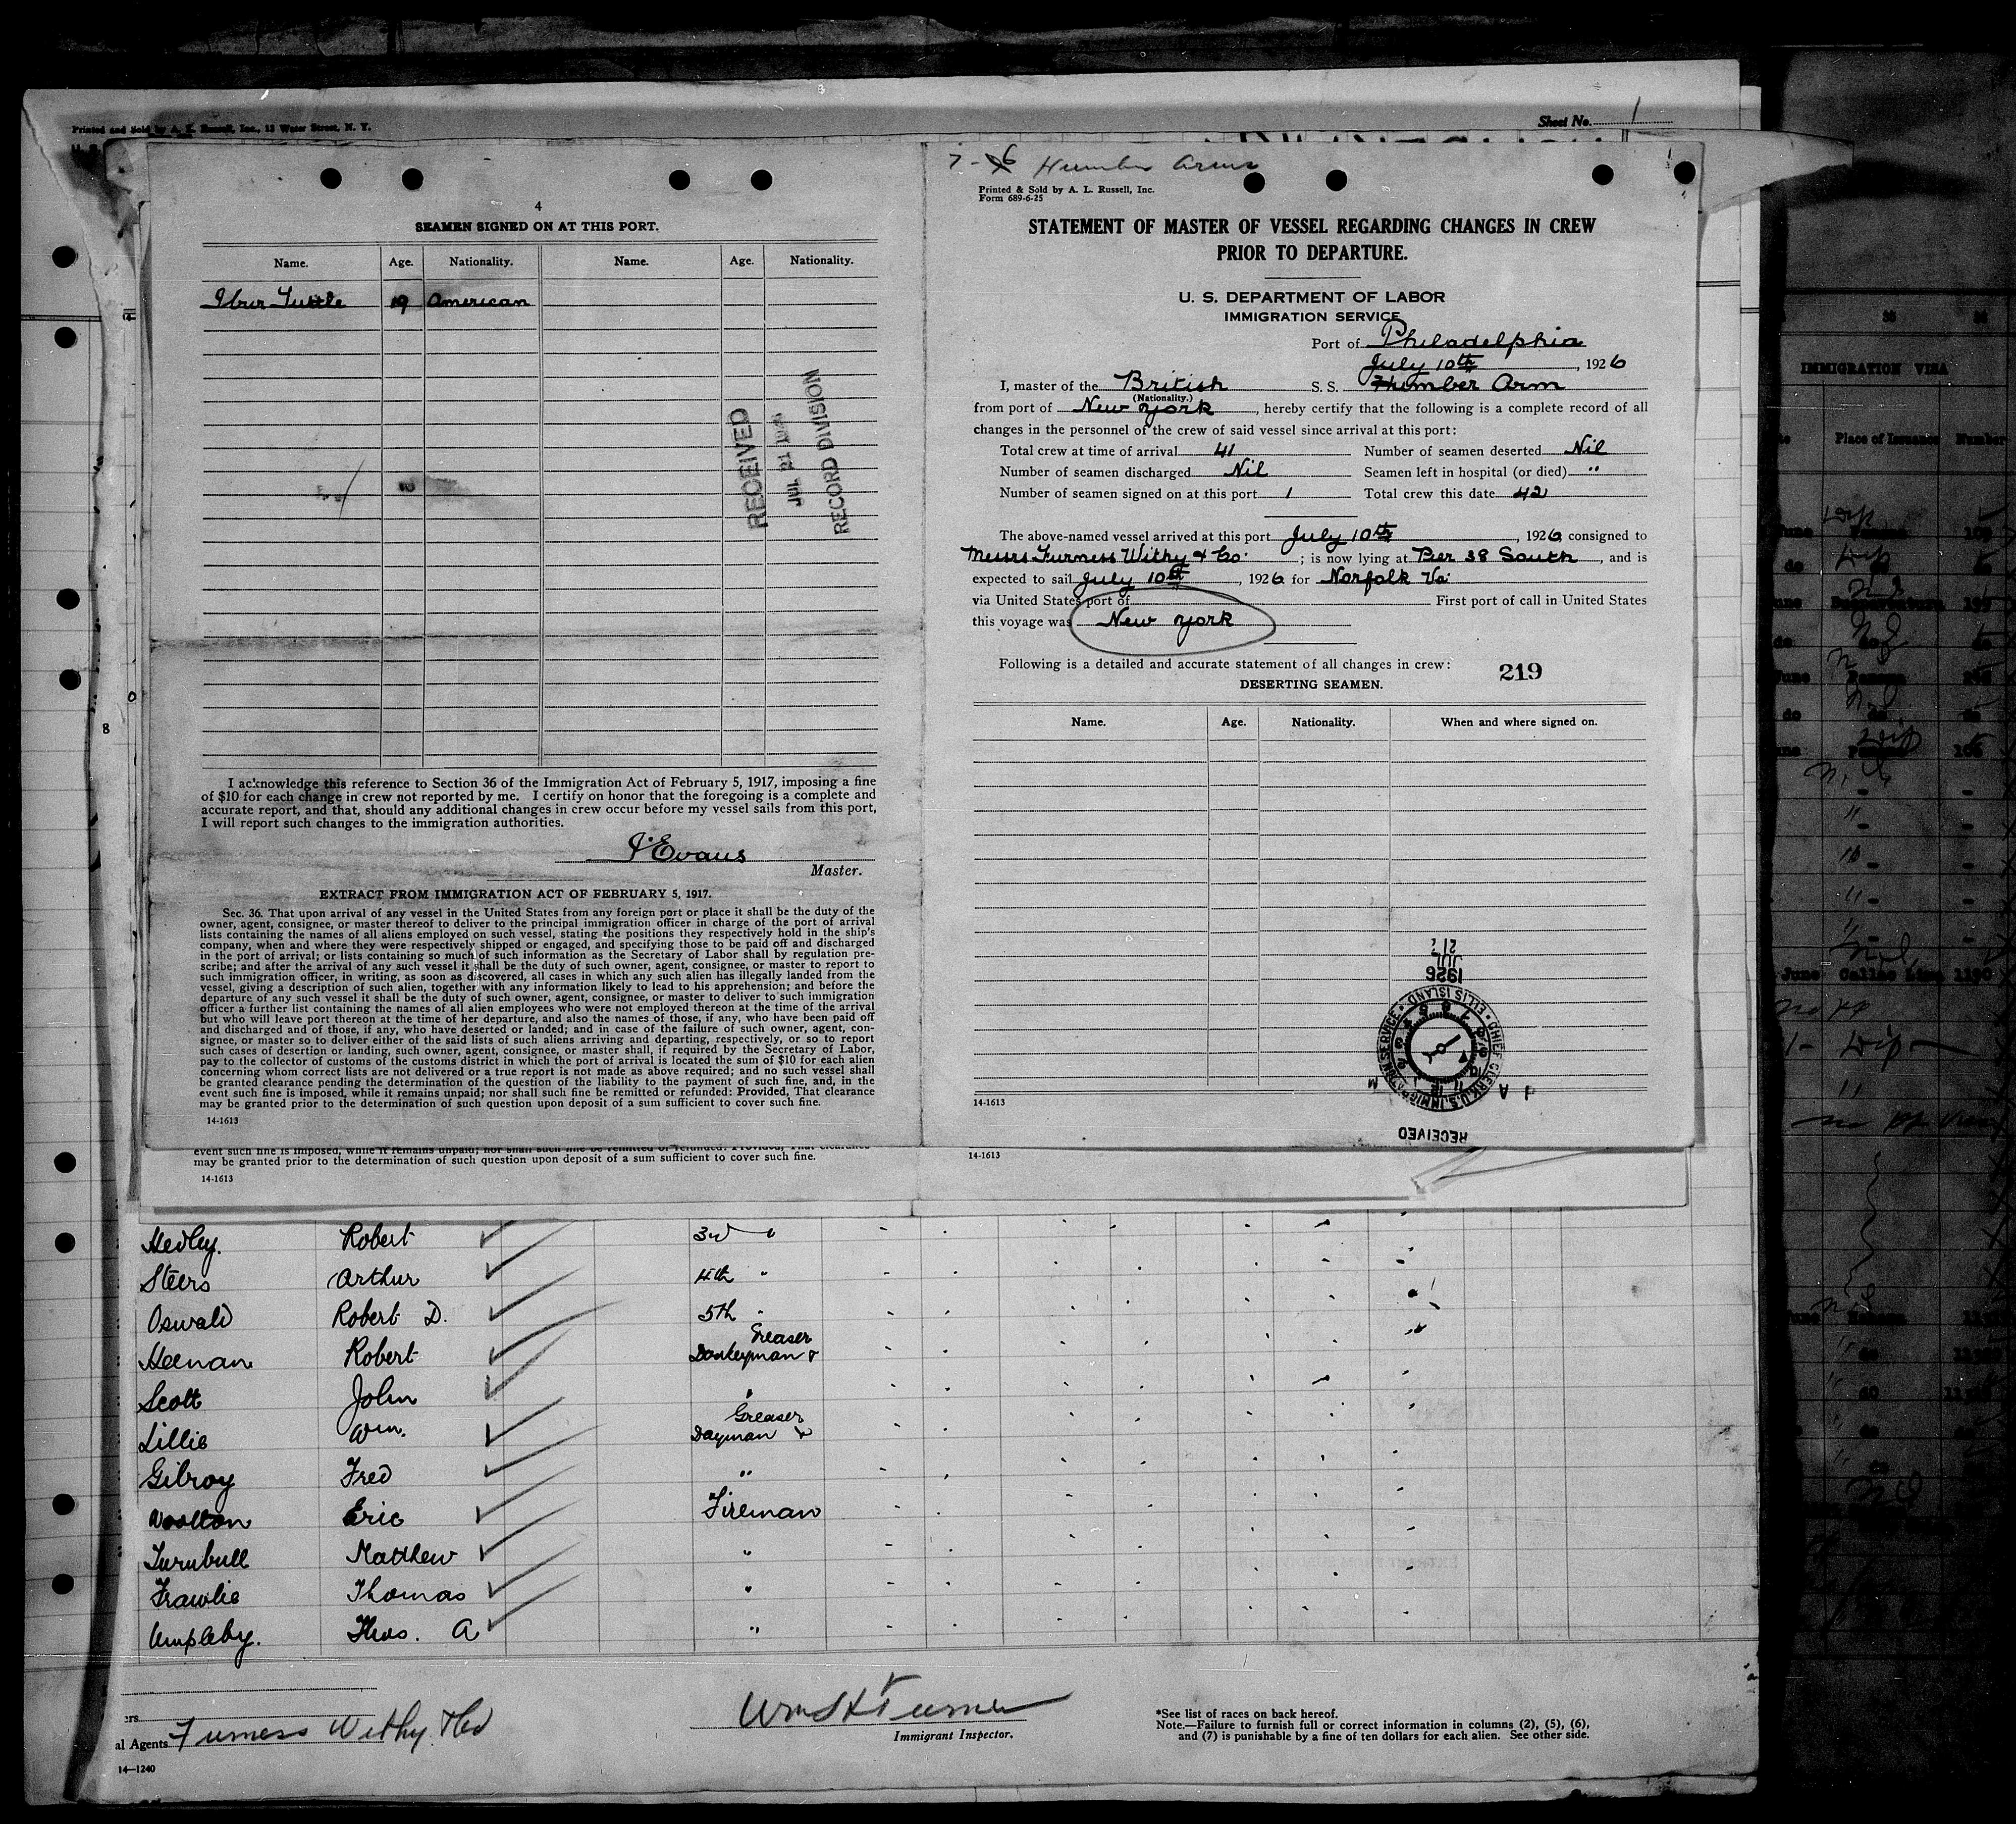 Printed and Sold by A. L. Russell, Inc., 13 Water Street, N. Y.
Sheet No. 1
4
SEAMEN SIGNED ON AT THIS PORT.
Name. Age. Nationality. Name. Age. Nationality.
Tuttle 19 American
RECEIVED
JUL 21 1926
RECORD DIVISION
I acknowledge this reference to Section 36 of the Immigration Act of February 5, 1917, imposing a fine
of $10 for each change in crew not reported by me. I certify on honor that the foregoing is a complete and
accurate report, and that, should any additional changes in crew occur before my vessel sails from this port,
I will report such changes to the immigration authorities.
J. Evans
Master.
EXTRACT FROM IMMIGRATION ACT OF FEBRUARY 5, 1917.
Sec. 36. That upon arrival of any vessel in the United States from any foreign port or place it shall be the duty of the
owner, agent, consignee, or master thereof to deliver to the principal immigration officer in charge of the port of arrival
lists containing the names of all aliens employed on such vessel, stating the positions they respectively hold in the ship's
company, when and where they were respectively shipped or engaged, and specifying those to be paid off and discharged
in the port of arrival; or lists containing so much of such information as the Secretary of Labor shall by regulation pre-
scribe; and after the arrival of any such vessel it shall be the duty of such owner, agent, consignee, or master to report to
such immigration officer, in writing, as soon as discovered, all cases in which any such alien has illegally landed from the
vessel, giving a description of such alien, together with any information likely to lead to his apprehension; and before the
departure of any such vessel it shall be the duty of such owner, agent, consignee, or master to deliver to such immigration
officer a further list containing the names of all alien employees who were not employed thereon at the time of the arrival
but who will leave port thereon at the time of her departure, and also the names of those, if any, who have been paid off
and discharged and of those, if any, who have deserted or landed; and in case of the failure of such owner, agent, con-
signee, or master so to deliver either of the said lists of such aliens arriving and departing, respectively, or so to report
such cases of desertion or landing, such owner, agent, consignee, or master shall, if required by the Secretary of Labor,
pay to the collector of customs of the customs district in which the port of arrival is located the sum of $10 for each alien
concerning whom correct lists are not delivered or a true report is not made as above required; and no such vessel shall
be granted clearance pending the determination of the question of the liability to the payment of such fine, and, in the
event such fine is imposed, while it remains unpaid; nor shall such fine be remitted or refunded: Provided, That clearance
may be granted prior to the determination of such question upon deposit of a sum sufficient to cover such fine.
14-1613
event such fine is imposed, while it remains unpaid; nor shall such fine be remitted or refunded: Provided, That clearance
may be granted prior to the determination of such question upon deposit of a sum sufficient to cover such fine.
14-1613
7-6 Humber Arm
Printed & Sold by A. L. Russell, Inc.
Form 689-6-25
STATEMENT OF MASTER OF VESSEL REGARDING CHANGES IN CREW
PRIOR TO DEPARTURE.
U. S. DEPARTMENT OF LABOR
IMMIGRATION SERVICE
Port of Philadelphia
July 10th, 1926
I, master of the British S. S. Humber Arm
(Nationality.)
from port of New York, hereby certify that the following is a complete record of all
changes in the personnel of the crew of said vessel since arrival at this port:
Total crew at time of arrival 41 Number of seamen deserted Nil
Number of seamen discharged Nil Seamen left in hospital (or died) "
Number of seamen signed on at this port 1 Total crew this date 42
The above-named vessel arrived at this port July 10th, 1926 consigned to
Messrs Furness Withy & Co.; is now lying at Pier 38 South, and is
expected to sail July 10th, 1926 for Norfolk Va.
via United States port of First port of call in United States
this voyage was New York
Following is a detailed and accurate statement of all changes in crew:
219
DESERTING SEAMEN.
Name. Age. Nationality. When and where signed on.
JUL 21
1926
CHIEF CLERK, U.S. IMMIGRATION SERVICE · ELLIS ISLAND
A M
RECEIVED
14-1613
14-1613
Hedley. Robert 3rd "
Steers Arthur 4th "
Oswald Robert D. 5th "
Heenan Robert Donkeyman & Greaser
Scott John "
Lillie Wm. Dayman & Greaser
Gilroy Fred "
Woolton Eric Fireman
Turnbull Matthew "
Frawlie Thomas "
Umpleby. Thos. A "
al Agents Furness Withy & Co
Wm H Turner
Immigrant Inspector.
14—1240
*See list of races on back hereof.
Note.—Failure to furnish full or correct information in columns (2), (5), (6),
and (7) is punishable by a fine of ten dollars for each alien. See other side.
IMMIGRATION VISA
Place of Issuance Number
June
do
do
do
June Callao Lima 1190
do